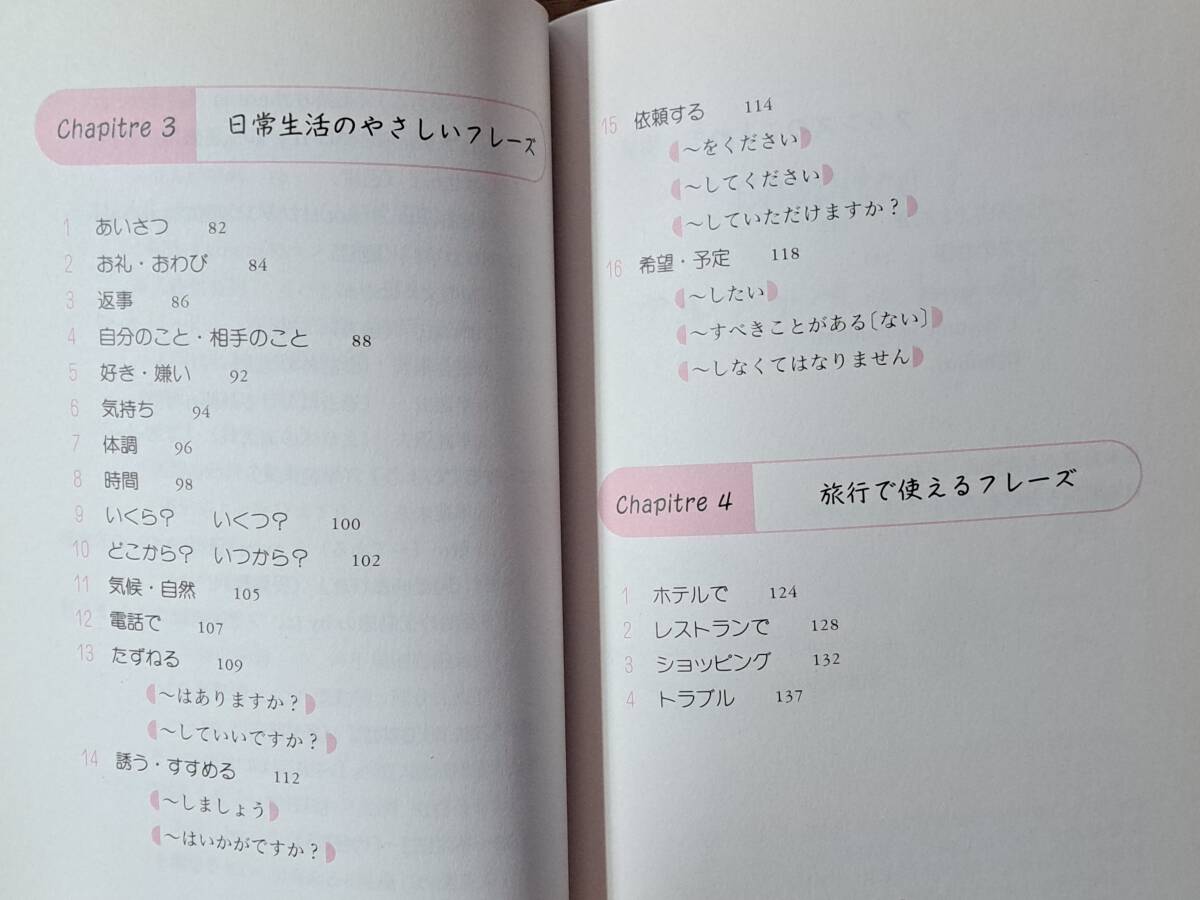 Chapitre 3 日常生活のやさしいフレーズ
1 あいさつ 82
2 お礼・おわび 84
3 返事 86
4 自分のこと・相手のこと 88
5 好き・嫌い 92
6 気持ち 94
7 体調 96
8 時間 98
9 いくら? いくつ? 100
10 どこから? いつから? 102
11 気候・自然 105
12 電話で 107
13 たずねる 109
〜はありますか?
〜していいですか?
14 誘う・すすめる 112
〜しましょう
〜はいかがですか?
15 依頼する 114
〜をください
〜してください
〜していただけますか?
16 希望・予定 118
〜したい
〜すべきことがある〔ない〕
〜しなくてはなりません
Chapitre 4 旅行で使えるフレーズ
1 ホテルで 124
2 レストランで 128
3 ショッピング 132
4 トラブル 137